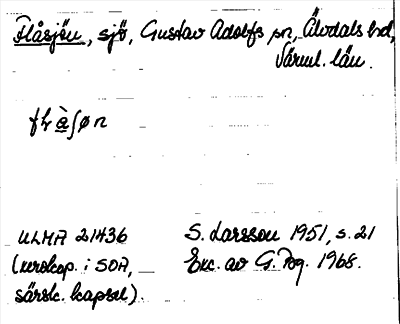 Flåsjön, sjö, Gustav Adolfs sn, Älvdals hd,
Värml. län.
ULMA 21436
(xeroxkop. i SOA,
särsk. kapsel).
S. Larsson 1951, s. 21
Exc. av G. Rog. 1968.